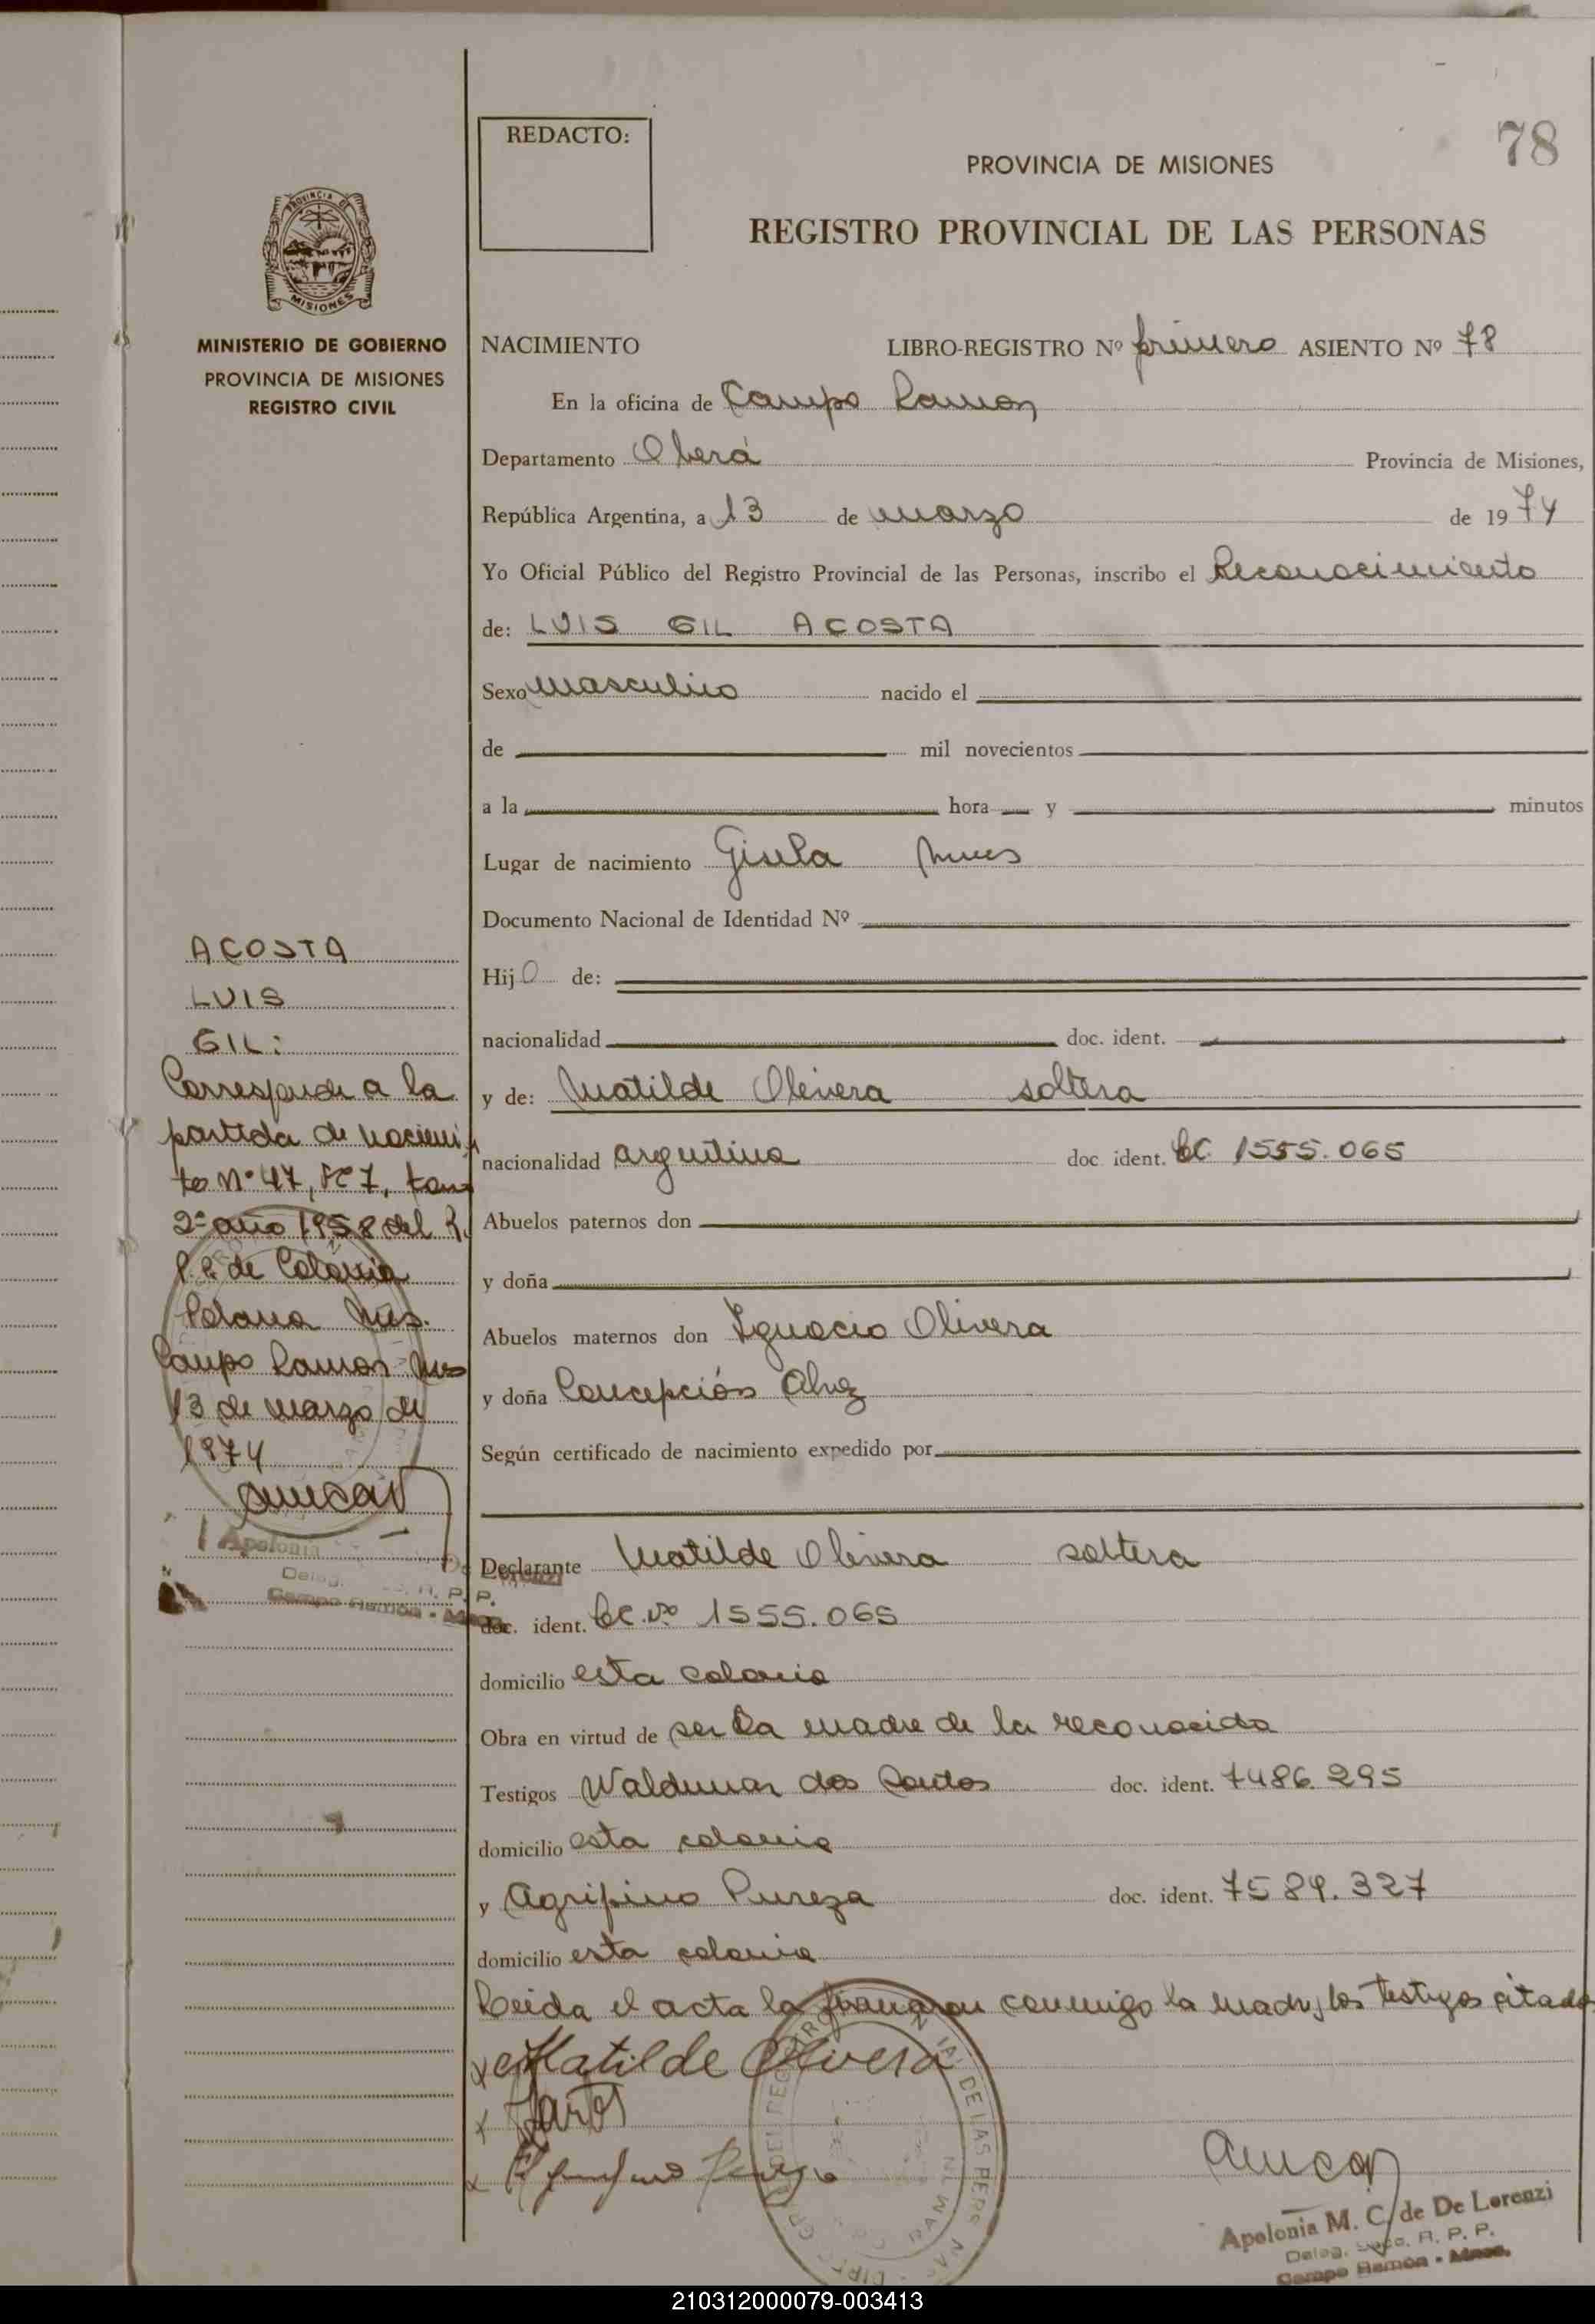 78
REDACTO:
PROVINCIA DE MISIONES
REGISTRO PROVINCIAL DE LAS PERSONAS
PROVINCIA DE
MISIONES
MINISTERIO DE GOBIERNO
PROVINCIA DE MISIONES
REGISTRO CIVIL
NACIMIENTO LIBRO-REGISTRO Nº primero ASIENTO Nº 78
En la oficina de Campo Ramon
Departamento Oberá Provincia de Misiones,
República Argentina, a 13 de marzo de 1974
Yo Oficial Público del Registro Provincial de las Personas, inscribo el Reconocimiento
de: LUIS GIL ACOSTA
Sexo masculino nacido el
de mil novecientos
a la hora y minutos
Lugar de nacimiento Gisela
Documento Nacional de Identidad Nº
Hijo de:
nacionalidad doc. ident.
y de: Matilde Olivera soltera
nacionalidad argentina doc ident. 1555.065
Abuelos paternos don
y doña
Abuelos maternos don Ignacio Olivera
y doña Concepción Alvez
Según certificado de nacimiento expedido por
Declarante Matilde Olivera soltera
doc. ident. Nº 1555.065
domicilio esta colonia
Obra en virtud de ser la madre de la reconocida
Testigos Waldemar dos Santos doc. ident. 7486.295
domicilio esta colonia
y Agripino Pureza doc. ident. 7589.327
domicilio esta colonia
Leida el acta la firmaron conmigo la madre, los testigos citados
Matilde Olivera
ACOSTA
LUIS
GIL:
Corresponde a la
partida de nacimien
to Nº 47, Fº 7, tomo
2º año 1958 del R.
de Colonia
Polana Mis.
Campo Ramon
13 de marzo de
1974
Apolonia
Campo Ramón
Apolonia M. C. de De Lorenzi
Deleg. R. P. P.
Campo Ramon - Mnes.
210312000079-003413